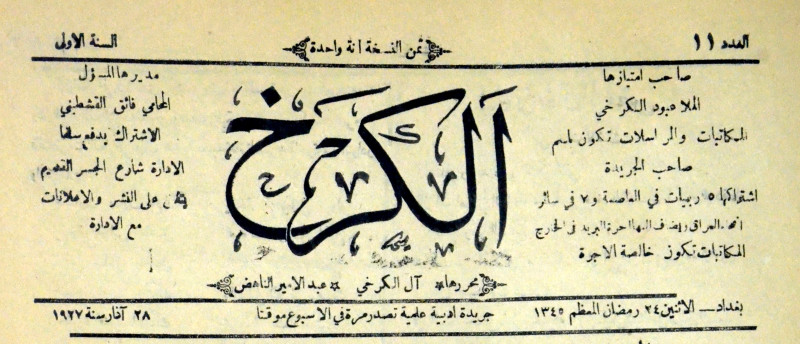 العدد ١١
ثمن النسخة آنة واحدة
السنة الاولى
صاحب امتيازها
الملا عبود الكرخي
المكاتبات والمراسلات تكون باسم
صاحب الجريدة
اشتراكها ٥ ربيات في العاصمة و٧ في سائر
انحاء العراق ويضاف اليها اجرة البريد في الخارج
المكاتبات تكون خالصة الاجرة
الكرخ
مديرها المسؤل
المحامي فائق القشطيني
الاشتراك يدفع سلفا
الادارة شارع الجسر القديم
على النشر والاعلانات
مع الادارة
محررها * آل الكرخي * عبد الامير الناهض
بغداد ــ الاثنين ٢٤ رمضان المعظم ١٣٤٥
جريدة ادبية علمية تصدر مرة في الاسبوع موقتا
٢٨ آذار سنة ١٩٢٧